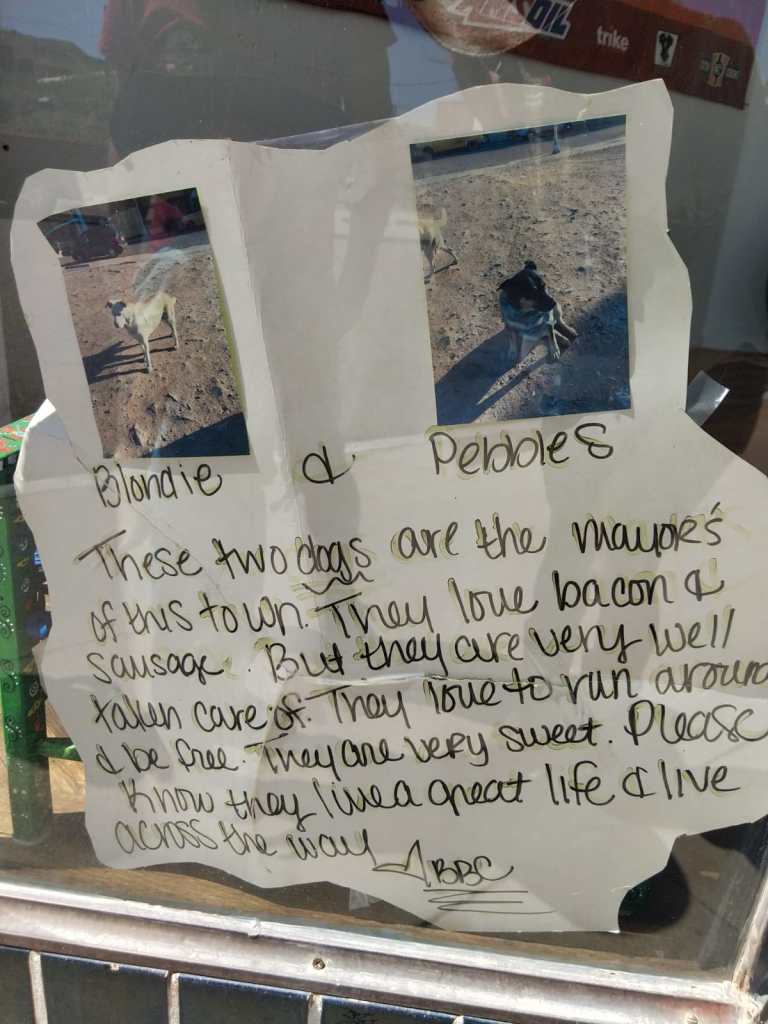 OIL
trike
Blondie & Pebbles
These two dogs are the mayor's
of this town. They love bacon &
sausage. But they are very well
taken care of. They love to run around
& be free. They are very sweet. Please
Know they live a great life & live
across the way
BBC